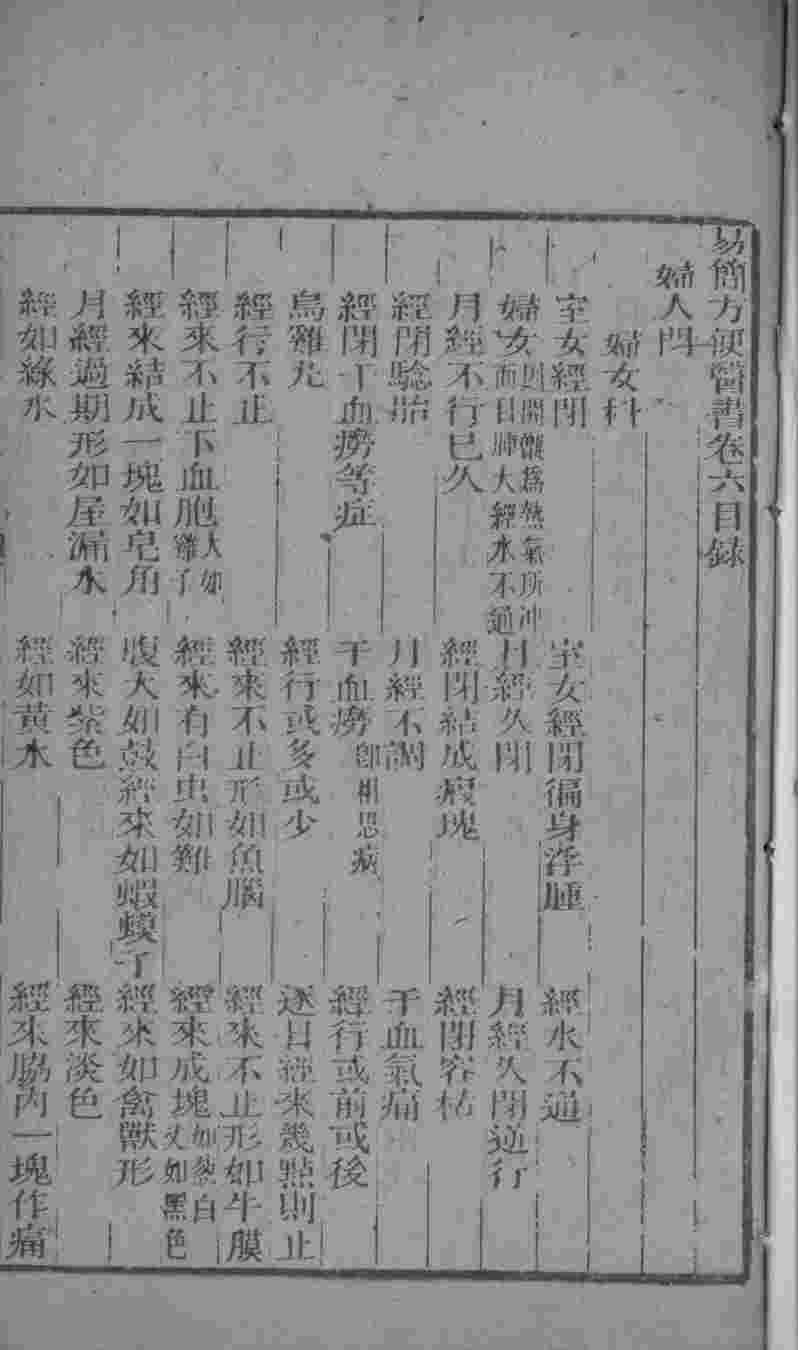 易簡方便醫書卷六目錄
婦人門
婦女科
室女經閉 室女經閉徧身浮腫 經水不通
婦女則開懶爲熱氣所冲面目肿大經水不通 月經久閉 月經久閉逆行
月經不行已久 經閉結成瘕塊 經閉容枯
經閉騐胎 月經不調 干血氣痛
經閉干血癆等症 干血癆卽相思病 經行或前或後
烏雞丸 經行或多或少 逐日經來幾點則止
經行不止 經來不止形如魚腦 經來不止形如牛膜
經來不止下血胞大如雞子 經來有白虫如雞 經來成塊如葱白又如黑色
經來結成一塊如皂角 腹大如鼓經來如蝦蟆子 經來如禽獸形
月經過期形如屋漏水 經來紫色 經來淡色
經如綠水 經如黃水 經來脇內一塊作痛